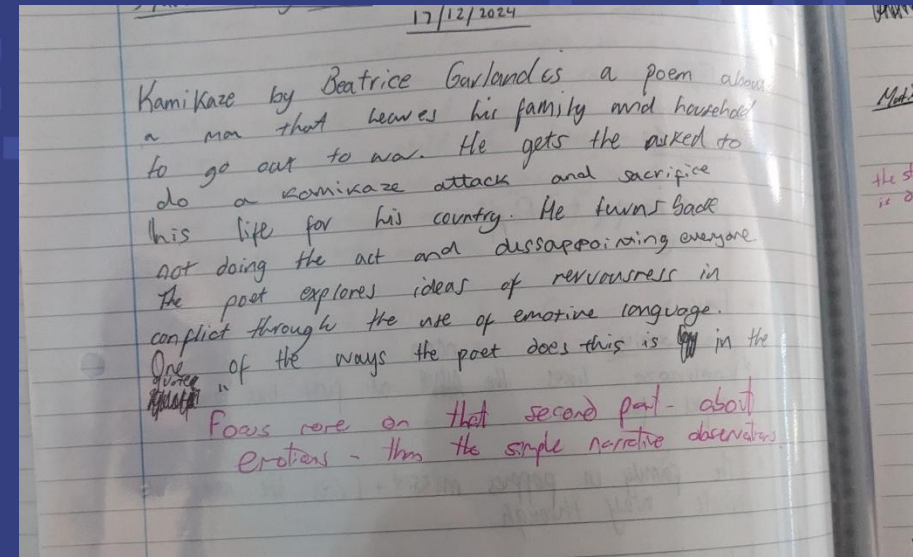 17/12/2024
Kamikaze by Beatrice Garland is a poem about
a man that leaves his family and household
to go out to war. He gets the asked to
do a kamikaze attack and sacrifice
his life for his country. He turns back
not doing the act and dissappoinning everyone.
The poet explores ideas of nervousness in
conflict through the use of emotive language.
One of the ways the poet does this is in the
quote "
Focus more on that second part - about
emotions - than the simple narrative observations
the st
is